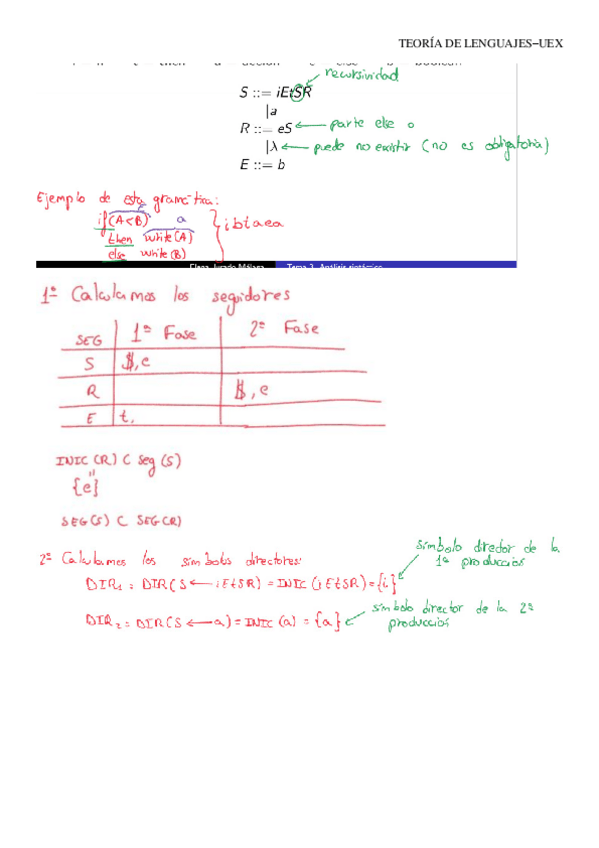 TEORÍA DE LENGUAJES–UEX
recursividad
S ::= iEtSR
|a
R ::= eS ← parte else o
|λ ← puede no existir (no es obligatoria)
E ::= b
Ejemplo de esta gramática:
if (A<B) a
then write(A) } ibtaea
else write(B)
Elena Jurado Málaga Tema 3. Análisis sintáctico
1º Calculamos los seguidores
SEG 1ª Fase 2ª Fase
S $,e
R $,e
E t,
INIC (R) ⊂ seg (S)
"
{e}
SEG(S) ⊂ SEG(R)
símbolo director de la
1ª producción
2º Calculamos los símbolos directores:
DIR₁ = DIR(S ← iEtSR) = INIC (iEtSR) = {i}
símbolo director de la 2ª
producción
DIR₂ = DIR(S ← a) = INIC (a) = {a}